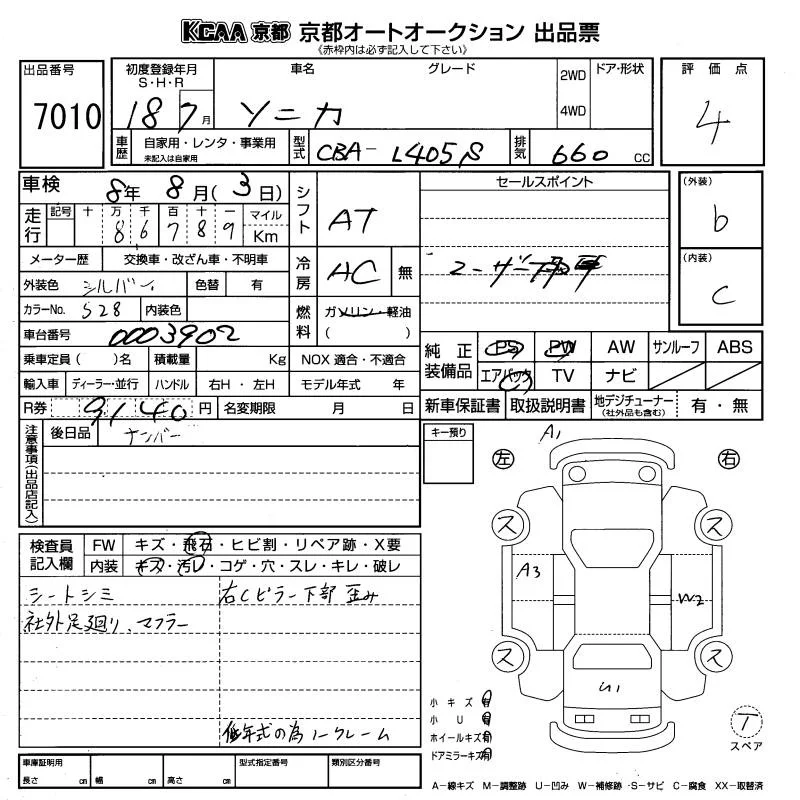 KCAA 京都 京都オートオークション 出品票
《赤枠内は必ず記入して下さい》
出品番号
7010
初度登録年月
S・H・R
18 7月
車名
ソニカ
グレード
2WD
4WD
ドア・形状
評価点
4
車歴
自家用・レンタ・事業用
未記入は自家用
型式
CBA- L405S
排気
660 cc
車検
8年 8月(3日)
シフト
AT
走行
記号 十 万 千 百 十 一 マイル
8 6 7 8 9 Km
メーター歴 交換車・改ざん車・不明車
冷房
AC 無
外装色 シルバー 色替 有
カラーNo. S28 内装色
燃料
ガソリン・軽油
( )
車台番号 0003902
乗車定員( )名 積載量 Kg NOX 適合・不適合
輸入車 ディーラー・並行 ハンドル 右H・左H モデル年式 年
R券 9140 円 名変期限 月 日
セールスポイント
ユーザー
(外装)
b
(内装)
C
純正装備品
PS PW AW サンルーフ ABS
エアバック TV ナビ
新車保証書 取扱説明書 地デジチューナー(社外品も含む) 有・無
注意事項(出品店記入)
後日品 ナンバー
キー預り
A1
左 右
ス ス
A3 W2
ス ス
U1
検査員記入欄
FW キズ・飛石・ヒビ割・リペア跡・X要
内装 キズ・汚レ・コゲ・穴・スレ・キレ・破レ
シートシミ 右Cピラー下部 歪み
社外足廻り、マフラー
低年式の為ノークレーム
小キズ 有
小U 有
ホイールキズ 有
ドアミラーキズ 有
T
スペア
車庫証明用 型式指定番号 類別区分番号
長さ cm 幅 cm 高さ cm
A−線キズ M−調整跡 U−凹み W−補修跡 S−サビ C−腐食 XX−取替済